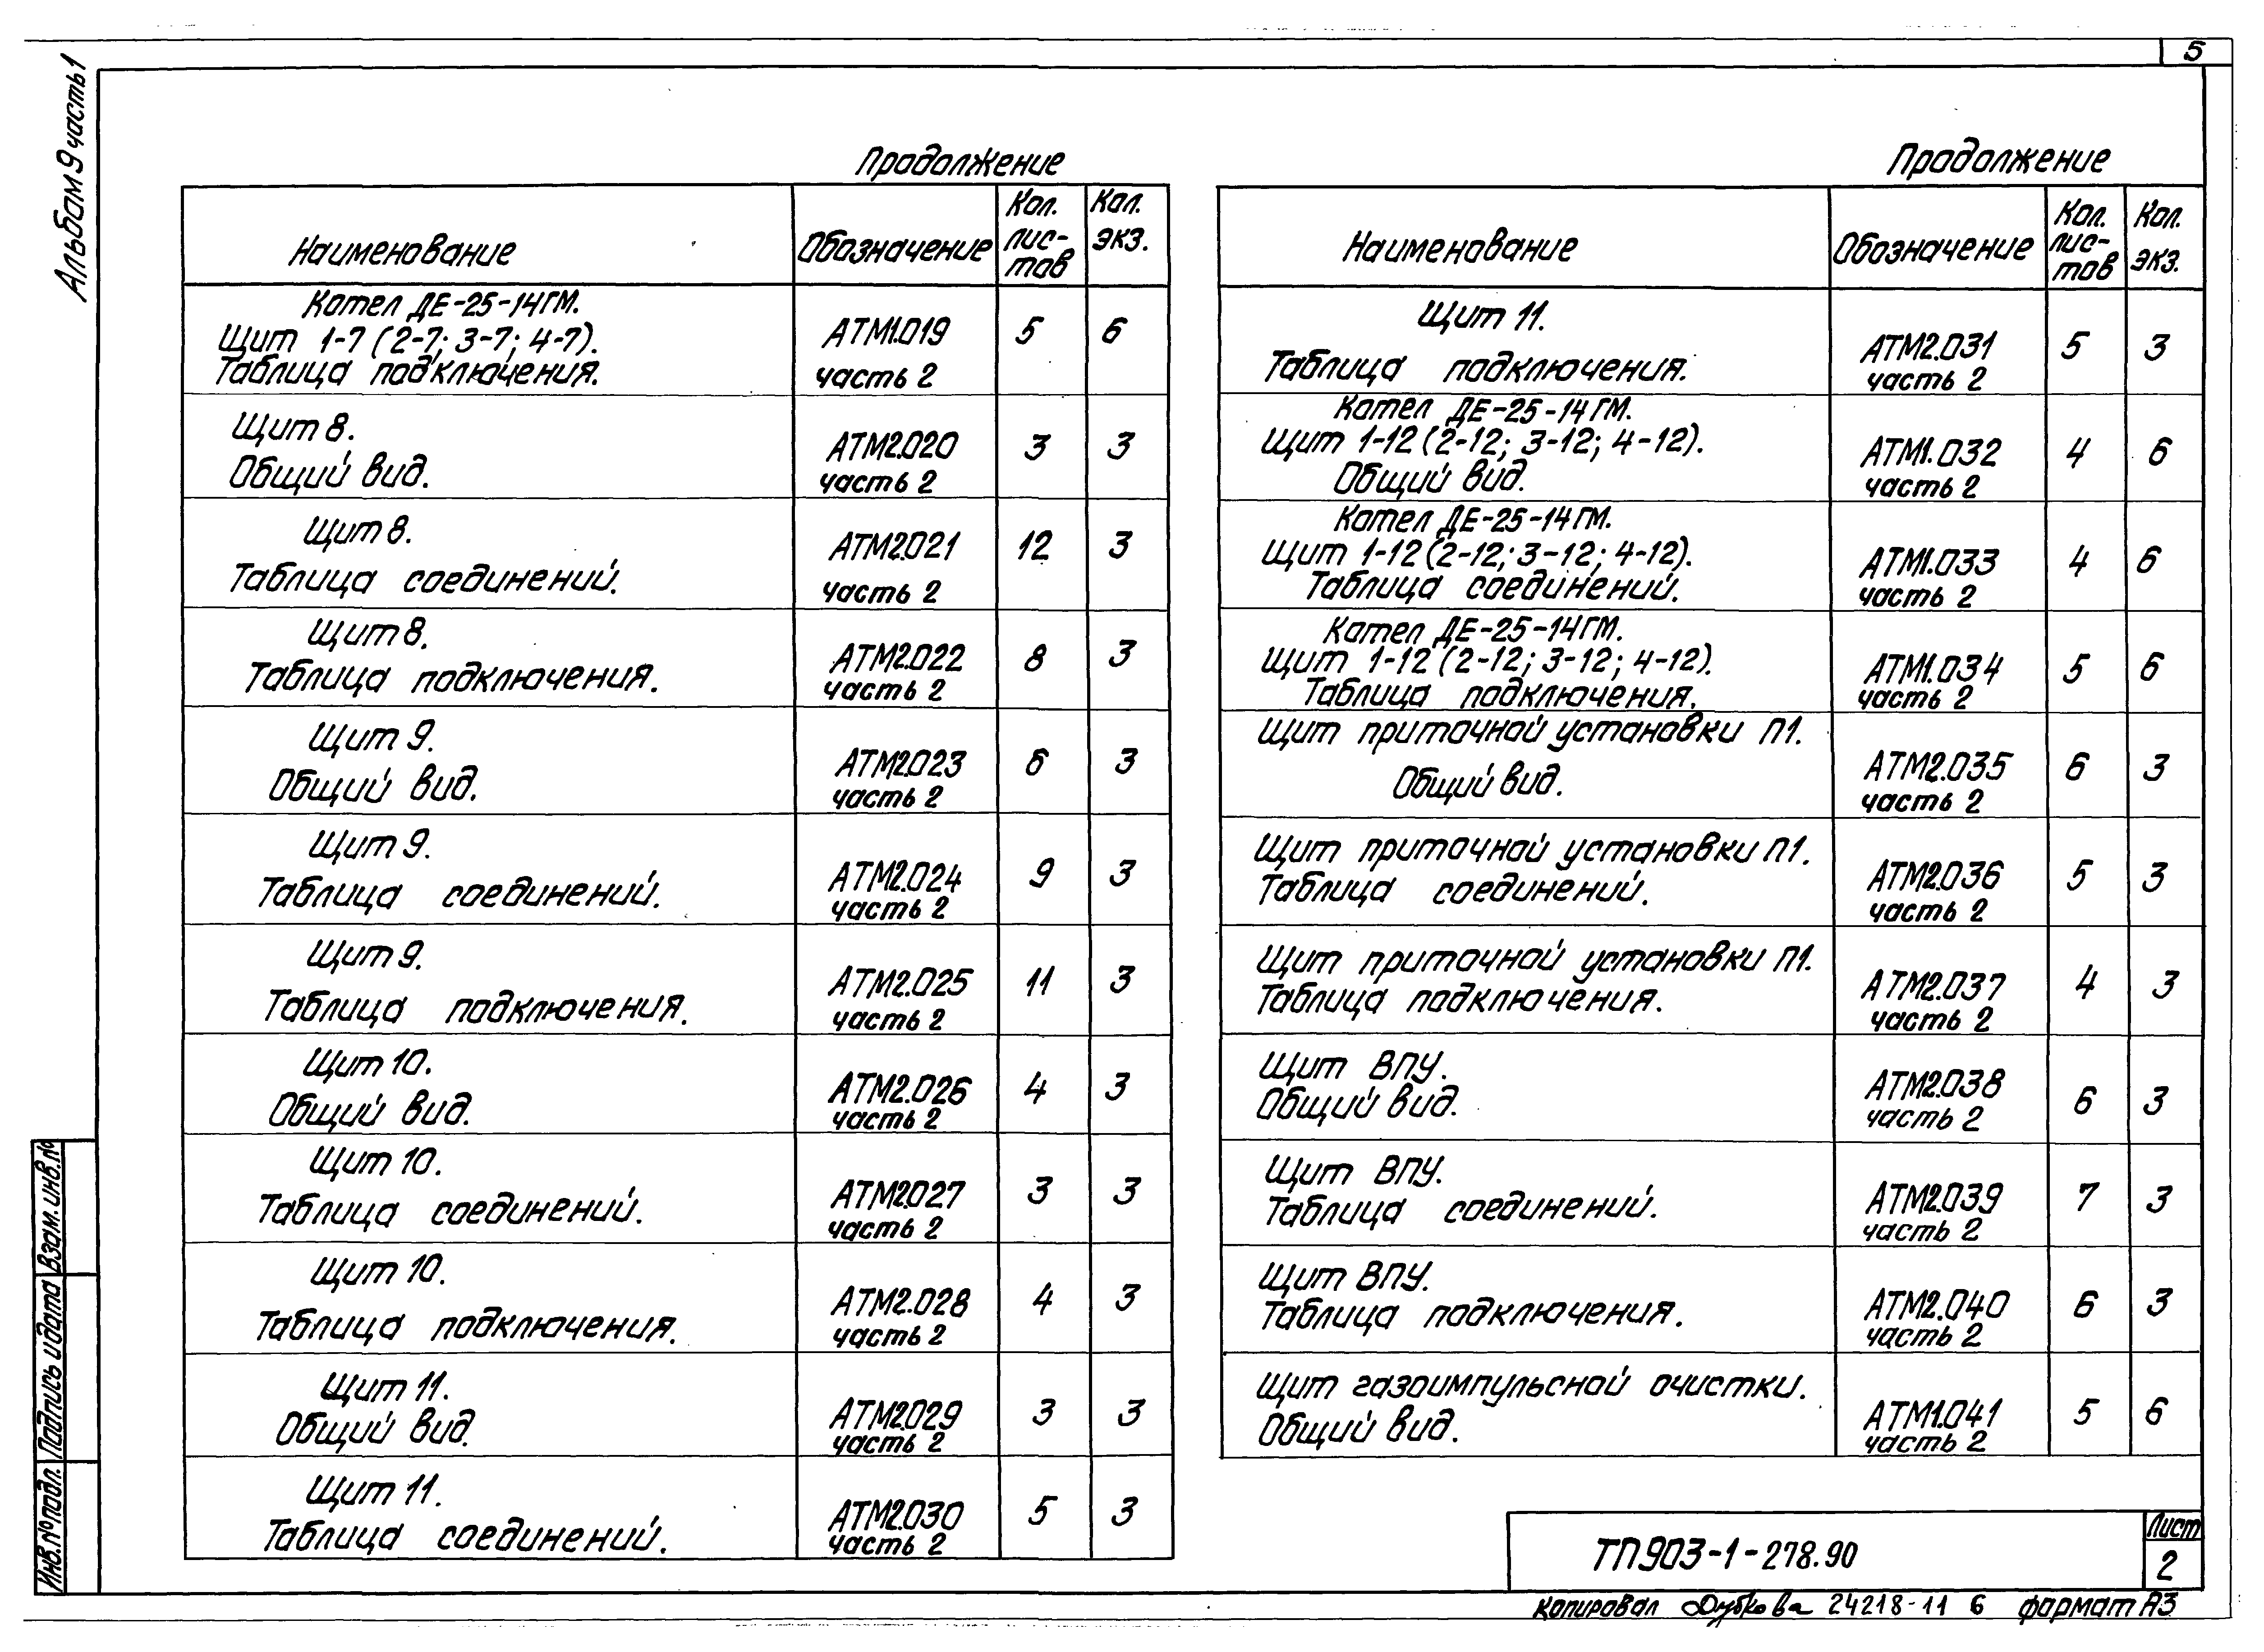 5
Альбом 9 часть 1
Продолжение
Наименование
Обозначение
Кол. лис-
тов
Кол.
экз.
Котел ДЕ-25-14ГМ.
Щит 1-7 (2-7; 3-7; 4-7).
Таблица подключения.
АТМ1.019
часть 2
5
6
Щит 8.
Общий вид.
АТМ2.020
часть 2
3
3
Щит 8.
Таблица соединений.
АТМ2.021
часть 2
12
3
Щит 8.
Таблица подключения.
АТМ2.022
часть 2
8
3
Щит 9.
Общий вид.
АТМ2.023
часть 2
6
3
Щит 9.
Таблица соединений.
АТМ2.024
часть 2
9
3
Щит 9.
Таблица подключения.
АТМ2.025
часть 2
11
3
Щит 10.
Общий вид.
АТМ2.026
часть 2
4
3
Щит 10.
Таблица соединений.
АТМ2.027
часть 2
3
3
Щит 10.
Таблица подключения.
АТМ2.028
часть 2
4
3
Щит 11.
Общий вид.
АТМ2.029
часть 2
3
3
Щит 11.
Таблица соединений.
АТМ2.030
часть 2
5
3
Продолжение
Наименование
Обозначение
Кол.
лис-
тов
Кол.
экз.
Щит 11.
Таблица подключения.
АТМ2.031
часть 2
5
3
Котел ДЕ-25-14ГМ.
Щит 1-12 (2-12; 3-12; 4-12).
Общий вид.
АТМ1.032
часть 2
4
6
Котел ДЕ-25-14ГМ.
Щит 1-12 (2-12; 3-12; 4-12).
Таблица соединений.
АТМ1.033
часть 2
4
6
Котел ДЕ-25-14ГМ.
Щит 1-12 (2-12; 3-12; 4-12).
Таблица подключения.
АТМ1.034
часть 2
5
6
Щит приточной установки П1.
Общий вид.
АТМ2.035
часть 2
6
3
Щит приточной установки П1.
Таблица соединений.
АТМ2.036
часть 2
5
3
Щит приточной установки П1.
Таблица подключения.
АТМ2.037
часть 2
4
3
Щит ВПУ.
Общий вид.
АТМ2.038
часть 2
6
3
Щит ВПУ.
Таблица соединений.
АТМ2.039
часть 2
7
3
Щит ВПУ.
Таблица подключения.
АТМ2.040
часть 2
6
3
Щит газоимпульсной очистки.
Общий вид.
АТМ1.041
часть 2
5
6
Инв.№подл. Подпись и дата Взам.инв.№
ТП903-1-278.90
Лист
2
Копировал Дубкова 24218-11 6 формат А3